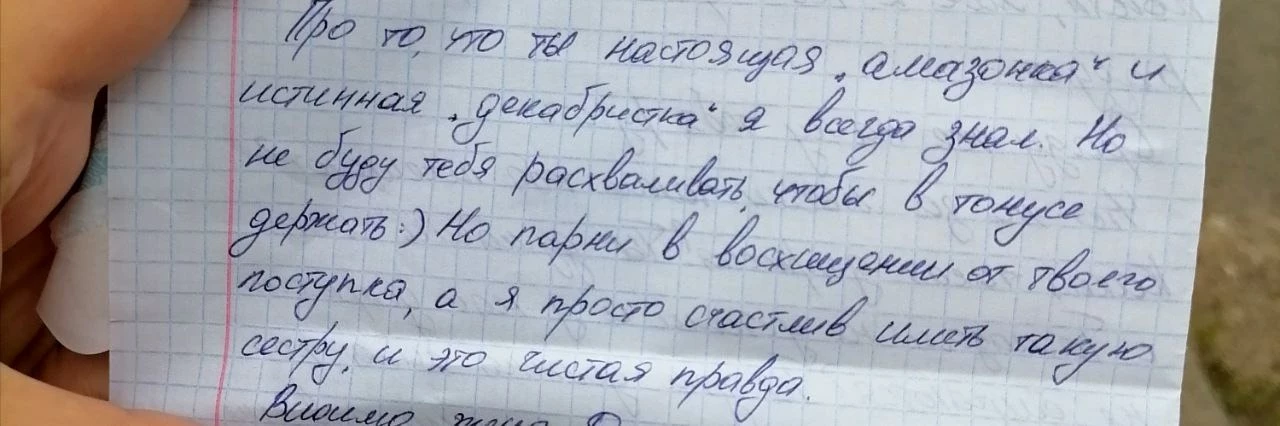 Про то, что ты настоящая „амазонка“ и
истинная „декабристка“ я всегда знал. Но
не буду тебя расхваливать, чтобы в тонусе
держать:) Но парни в восхищении от твоего
поступка, а я просто счастлив иметь такую
сестру, и это чистая правда.
Видимо